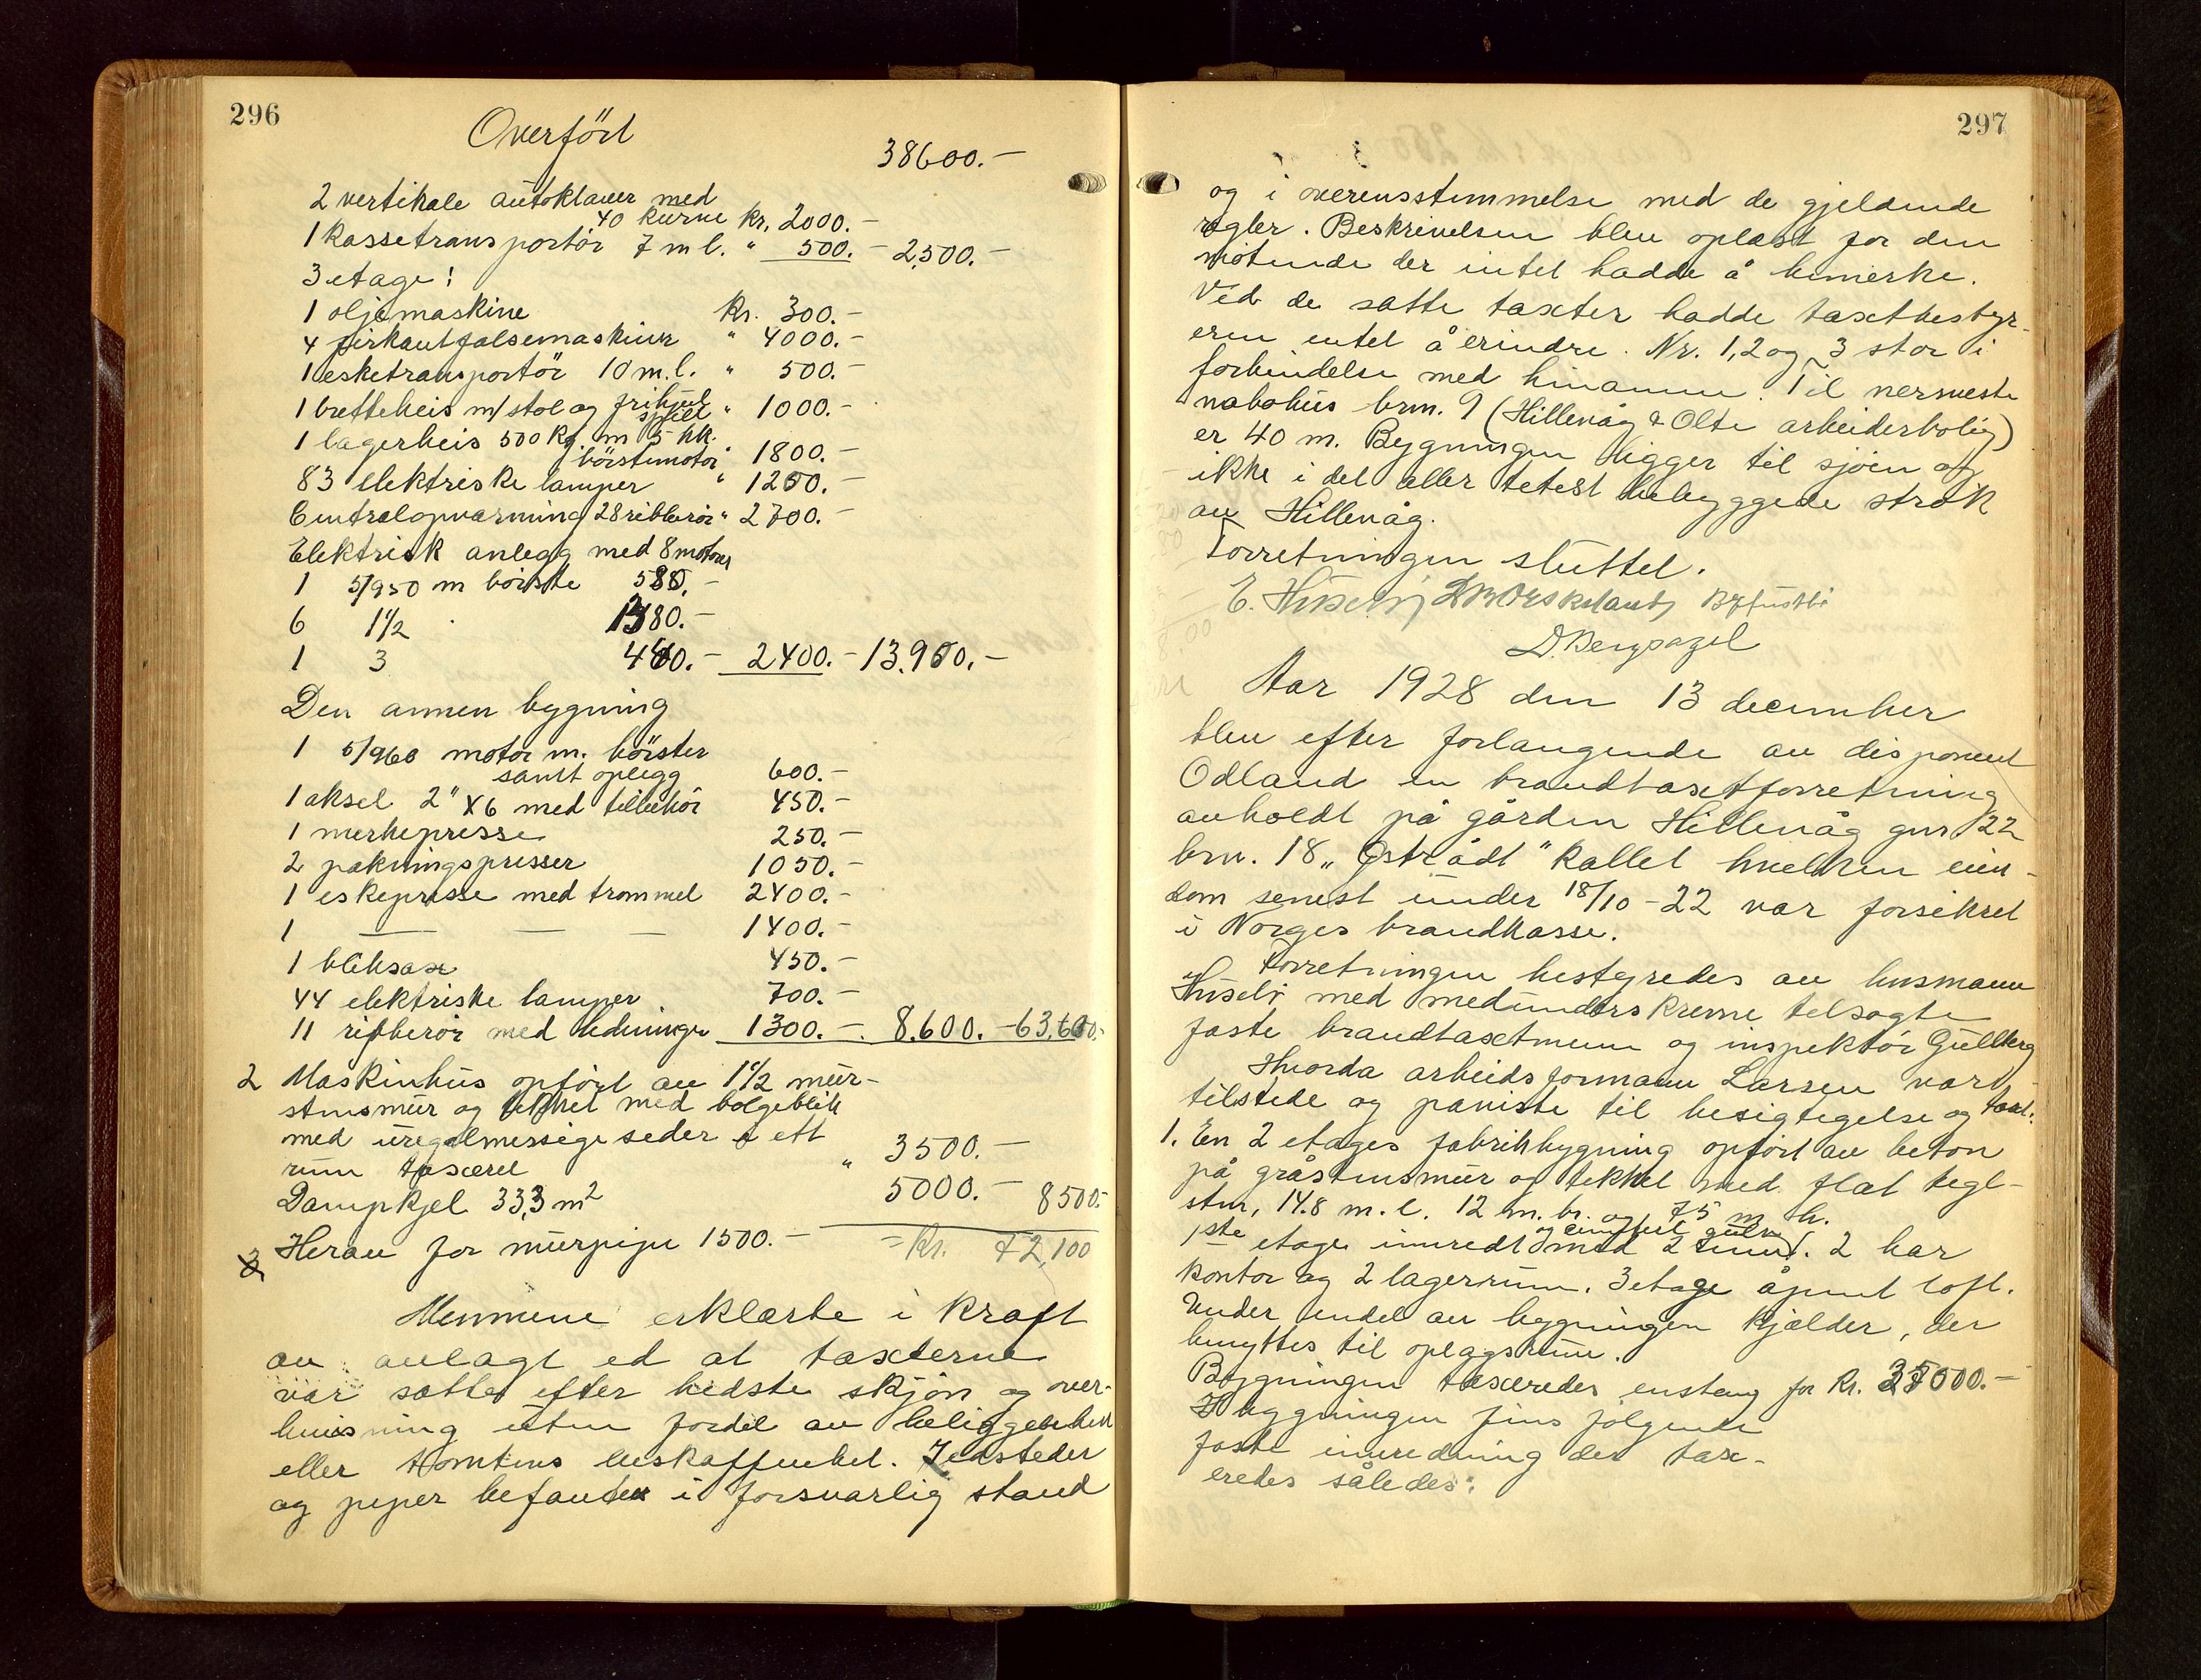 296
Overfört
38600.-
2 vertikale autoklaver med
40 kurve kr. 2000.-
1 kassetransportör 7 m l. " 500.- 2,500.-
3 etage:
1 oljemaskine kr. 300.-
4 firkantfalsemaskiner " 4000.-
1 esketransportör 10 m.l. " 500.-
1 bretteheis m/stol og frihjul
spill " 1000.-
1 lagerheis 500 kg. m 5 hk.
börstemotor " 1800.-
83 elektriske lamper " 1250.-
Centralopvarming 28 ribberör " 2700.-
Elektrisk anlegg med 8 motorer
1 5/950 m börste 580.-
6 1½ 1380.-
1 3 440.- 2400.- 13.950.-
Den annen bygning
1 5/960 motor m. börster
samt oplegg 600.-
1 aksel 2" x 6 med tilbehör 450.-
1 merkepresse 250.-
2 pakningspresser 1050.-
1 eskepresse med trommel 2400.-
1 — — — 1400.-
1 bliksax 450.-
44 elektriske lamper 700.-
11 ribberör med ledninger 1300.- 8.600.- 63,600.-
2 Maskinhus opfört av 1½ mur-
stensmur og tekket med bölgeblik
med uregelmessige seder & ett
rum taxeret " 3500.-
Dampkjel 33,3 m² 5000.- 8500.-
Herav for murpipe 1500.- = Kr. 72,100
Mennene erklærte i kraft
av avlagt ed at taxterne
var satte efter bedste skjön og over-
bevisning uten fordel av beliggenhet
eller tomtens beskaffenhet. Ildsteder
og piper befandtes i forsvarlig stand
297
og i overensstemmelse med de gjeldende
regler. Beskrivelsen blev oplæst for den
mötende der intet hadde å bemerke.
Ved de satte taxter hadde taxtbestyr-
eren intet å erindre. Nr. 1, 2 og 3 står i
forbindelse med hinannen. Til nermeste
nabohus brn. 9 (Hillevåg & Olte arbeiderbolig)
er 40 m. Bygningen ligger til sjöen og
ikke i det aller tetest bebyggede strök
av Hillevåg.
Forretningen sluttet.
E. Huseby
D. Bergsagel
Aar 1928 den 13 december
blev efter forlangende av disponent
Odland en brandtaxtforretning
avholdt på gården Hillevåg gnr 22
brn. 18 "Östrådt" kallet hvilken eien-
dom senest under 18/10-22 var forsikret
i Norges brandkasse.
Forretningen bestyredes av husmann
Huseby med medunderskrevne tilsagte
faste brandtaxtmenn og inspektör Gullberg
Hvorda arbeidsformann Larsen var
tilstede og paviste til besigtigelse og taxt:
1. En 2 etages fabrikbygning opfört av beton
på gråstensmur og tekket med flat tegl-
sten, 14.8 m. l. 12 m. br. og 7,5 m. h.
1ste etage innredt med 2 rum og cement gulv. 2 har
kontor og 2 lagerrum. 3 etage åpent loft.
Under endel av bygningen kjælder, der
benyttes til oplagsrum.
Bygningen taxeredes for kr. 35000.-
I bygningen fins fölgende
faste innredning der tax-
eredes således: